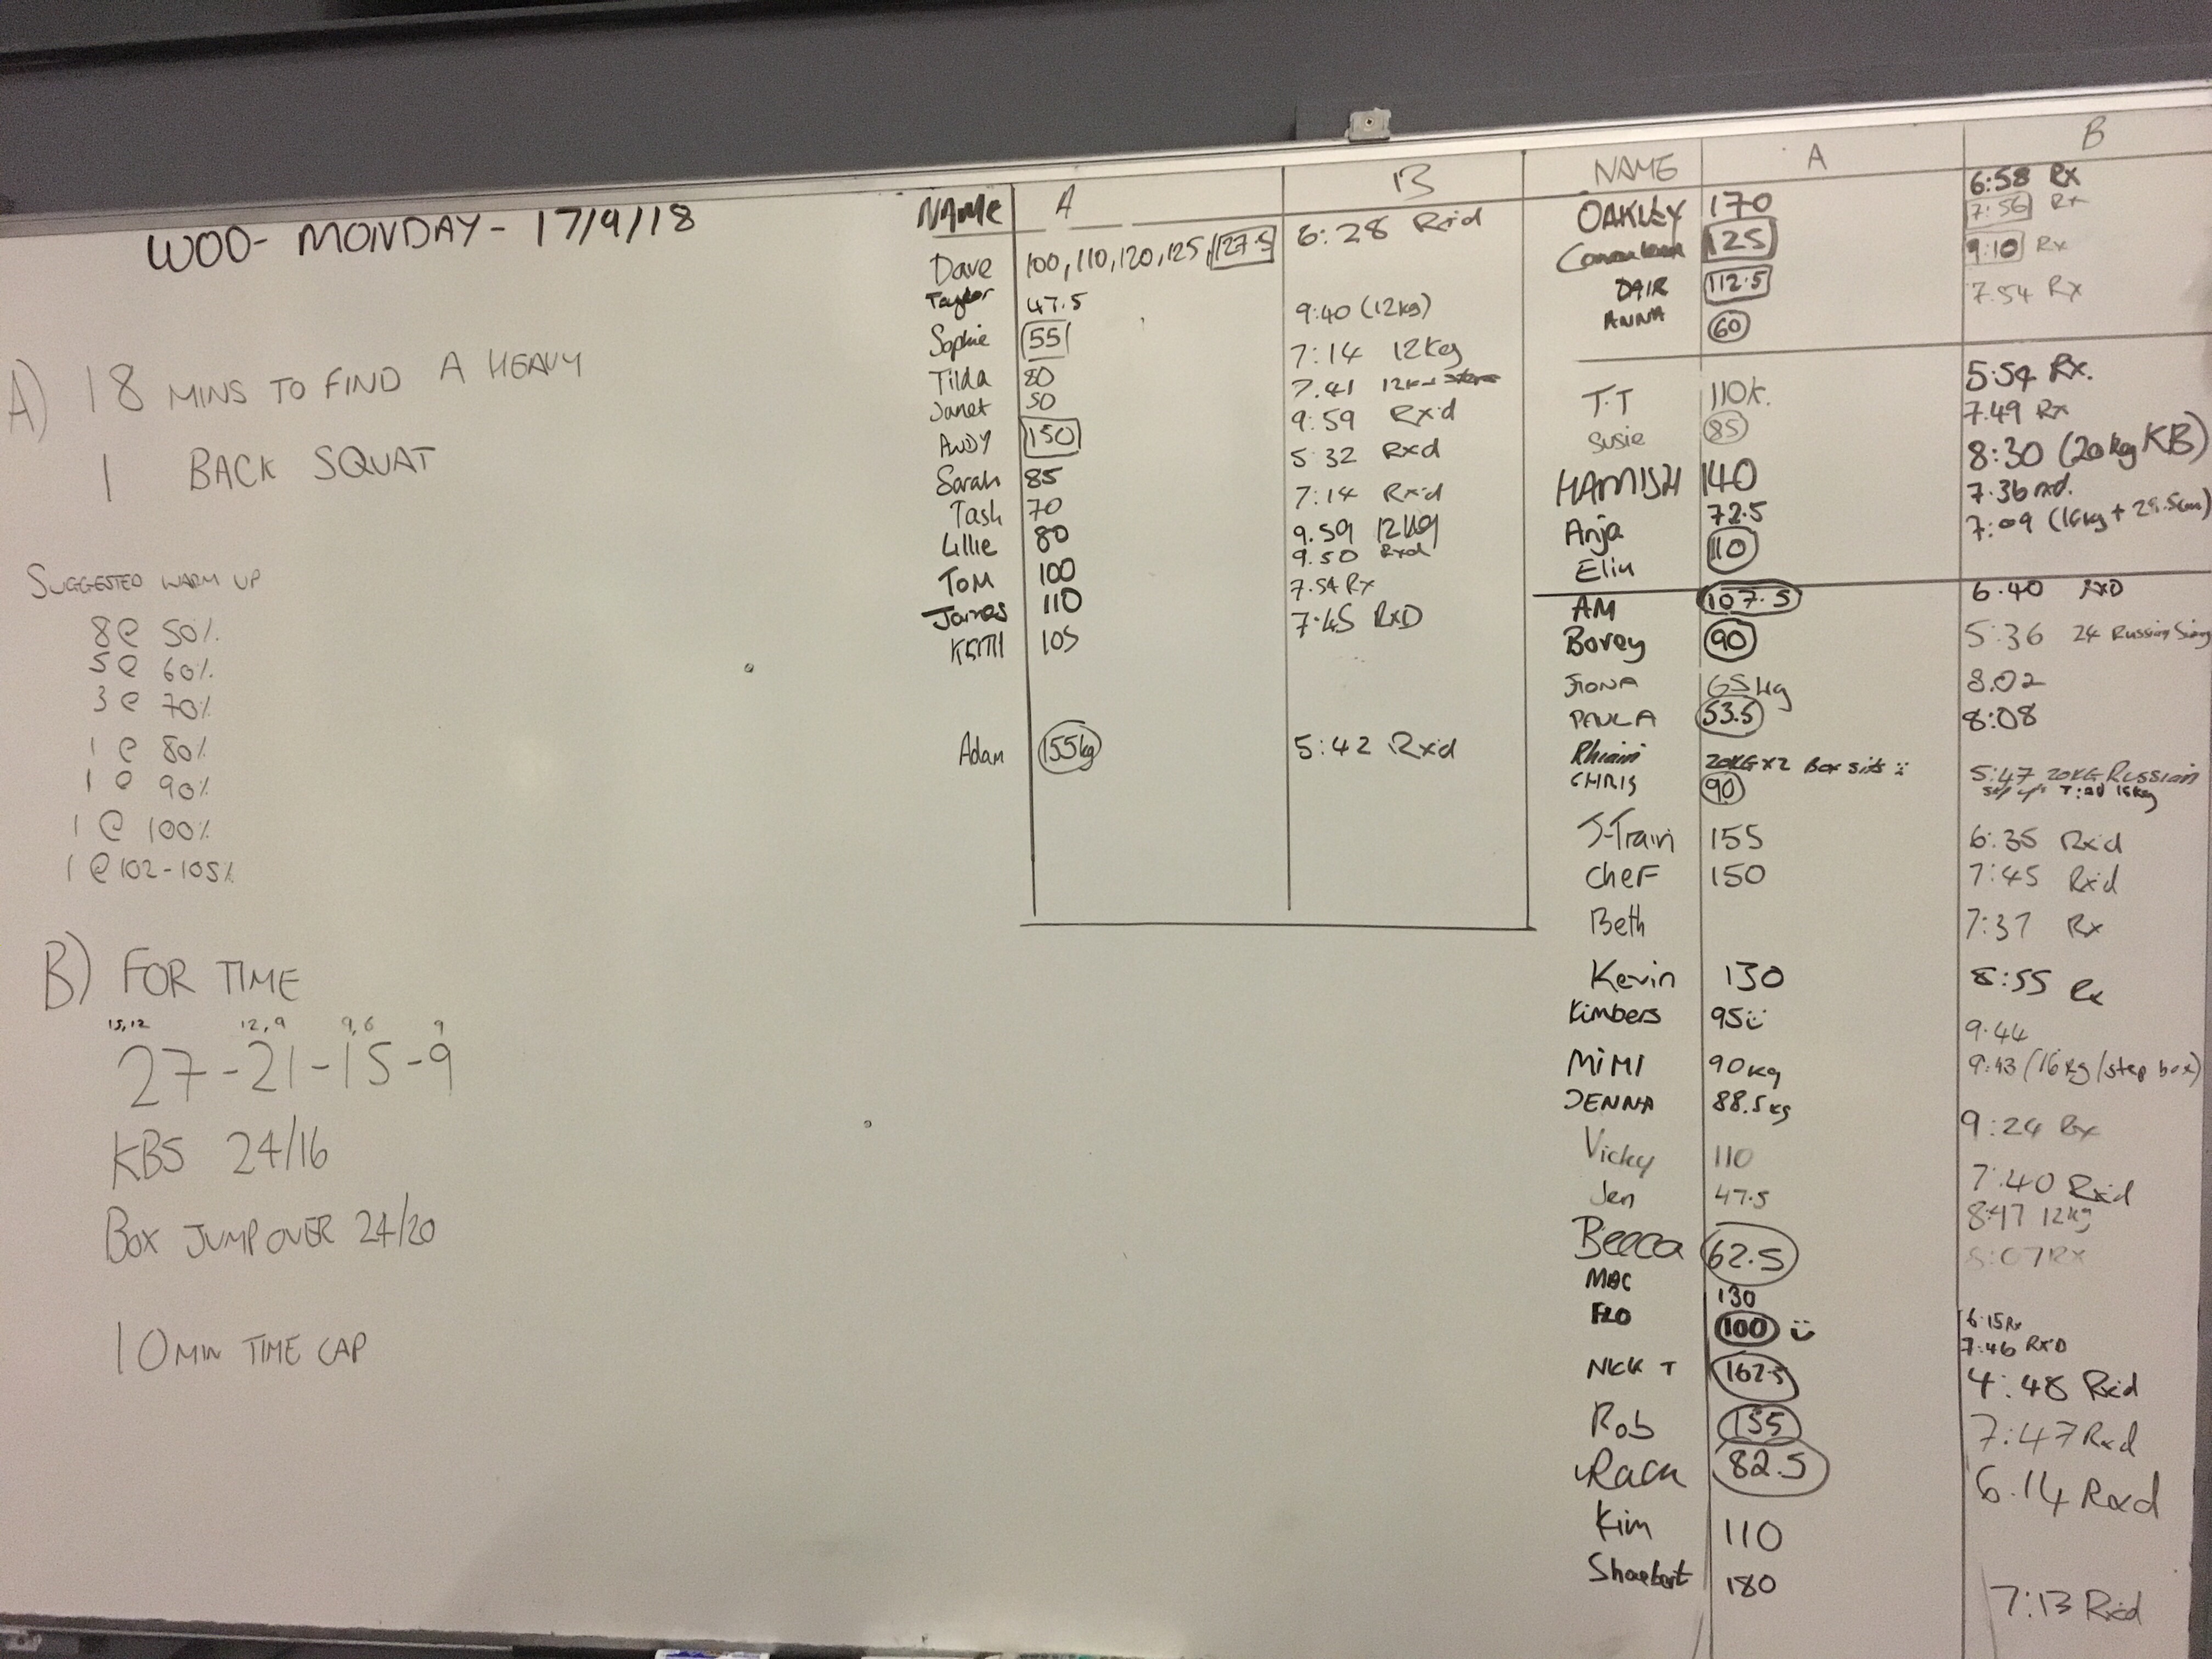 WOD- MONDAY - 17/9/18
A) 18 MINS TO FIND A HEAVY
1 BACK SQUAT
SUGGESTED WARM UP
8@ 50%
5@ 60%
3@ 70%
1@ 80%
1@ 90%
1@ 100%
1@102-105%
B) FOR TIME
15,12 12,9 9,6 9
27-21-15-9
KBS 24/16
BOX JUMP OVER 24/20
10 MIN TIME CAP
NAME A B
Dave 100, 110, 120, 125, 127.5 6:28 Rxd
Taylor 47.5 9:40 (12kg)
Sophie 55 7:14 12kg
Tilda 80 7.41
Janet 50 9:59 Rx'd
ANDY 150 5 32 Rxd
Sarah 85 7:14 Rx'd
Tash 70 9.59 12kg
Lillie 80 9.50 Rxd
TOM 100 7.54 Rx
James 110 7.45 RXD
105
Adam 155kg 5:42 Rxd
NAME A B
OAKLEY 170 6:58 Rx
125 7:56 Rx
DAIR 112.5 9:10 Rx
ANNA 60 7.54 Rx
T.T 110k. 5:54 Rx.
Susie 85 7.49 Rx
HAMISH 140 8:30 (20kg KB)
Anja 72.5 7.36 rxd.
110 7:09
AM 107.5 6.40 RXD
90 5:36 24 Russian
FIONA 65kg 8.02
PAULA 53.5 8:08
20KG x2 Box sits
CHRIS 90 5:47 20KG Russian
J-Train 155 6:35 Rx'd
CheF 150 7:45 Rx'd
Beth 7:37 Rx
Kevin 130 8:55 Rx
Kimbers 95 9.44
MiMI 90kg 9:43 (16kg/step box)
JENNA 88.5kg
Vicky 110 9:24 Rx
Jen 47.5 7:40 Rxd
Becca 62.5 8:47 12kg
8:07 Rx
130
FLO 100 6:15 Rx
7:46 RXD
NICK T 162.5 4:48 Rxd
Rob 155 7:47 Rxd
82.5 6.14 Rxd
Kim 110
180 7:13 Rxd